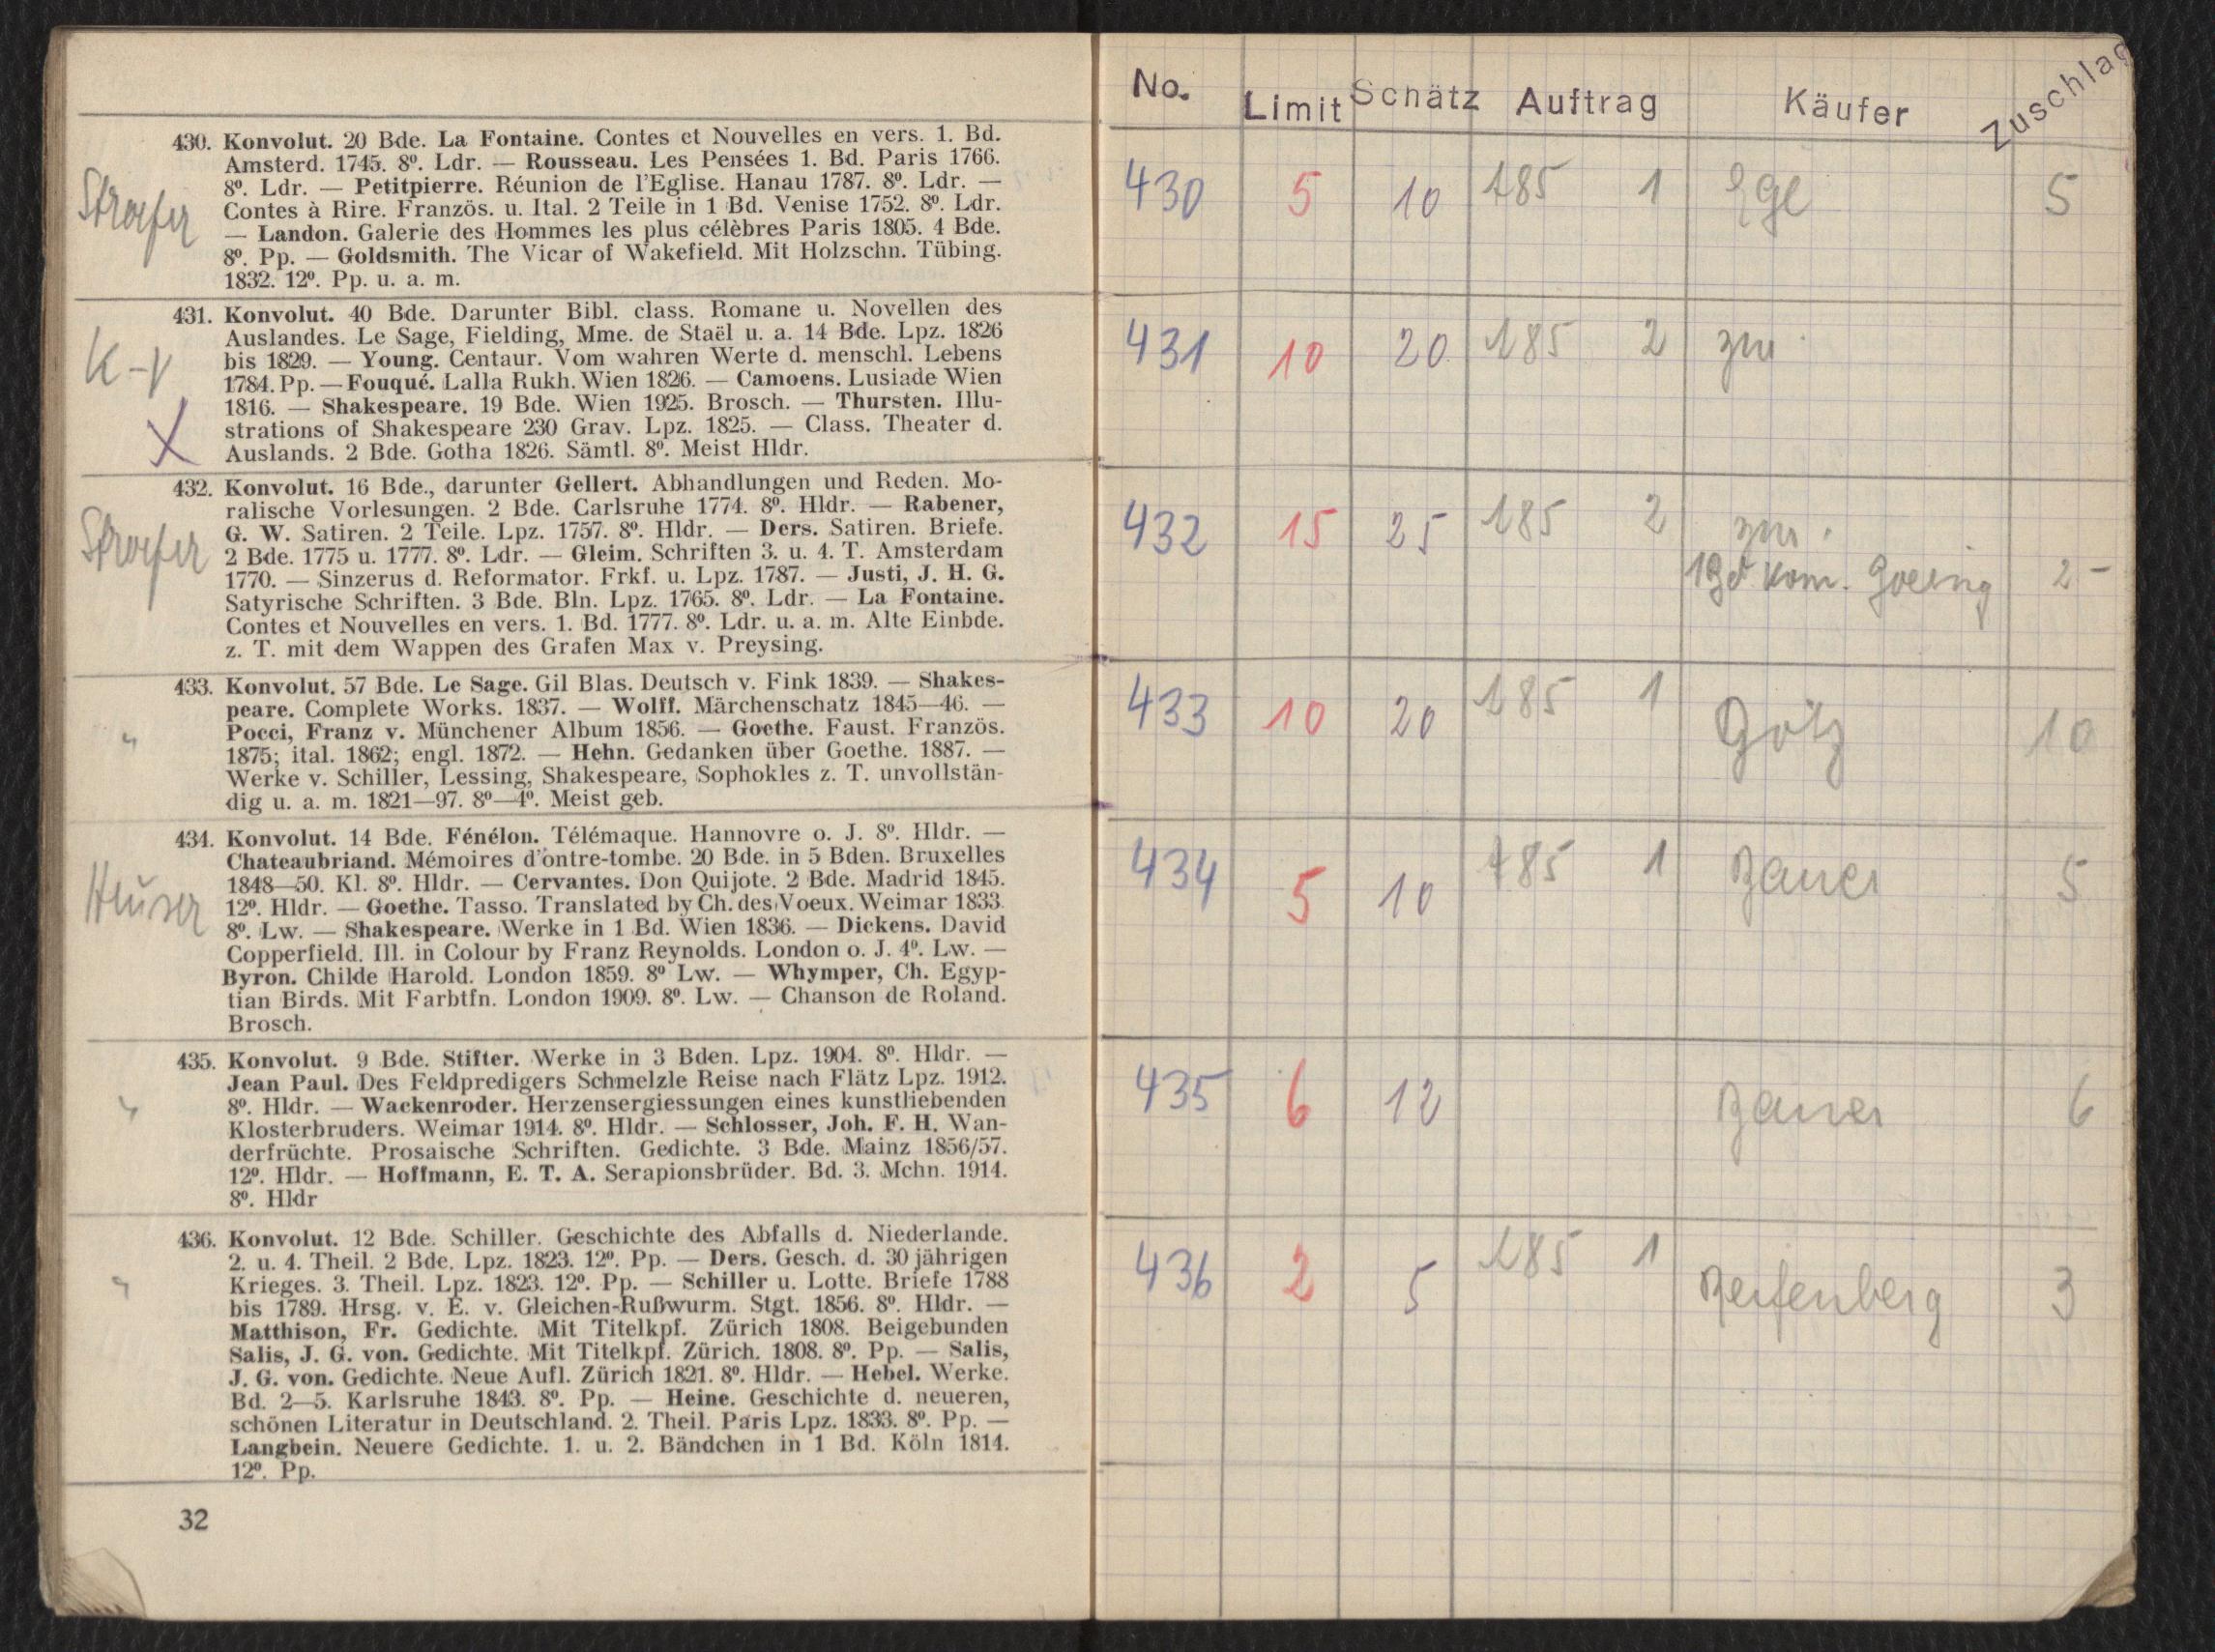 430. Konvolut. 20 Bde. La Fontaine. Contes et Nouvelles en vers. 1. Bd.
Amsterd. 1745. 8º. Ldr. — Rousseau. Les Pensées 1. Bd. Paris 1766.
8º. Ldr. — Petitpierre. Réunion de l'Eglise. Hanau 1787. 8º. Ldr. —
Contes à Rire. Französ. u. Ital. 2 Teile in 1 Bd. Venise 1752. 8º. Ldr.
— Landon. Galerie des Hommes les plus célèbres Paris 1805. 4 Bde.
8º. Pp. — Goldsmith. The Vicar of Wakefield. Mit Holzschn. Tübing.
1832. 12º. Pp. u. a. m.
K-V
431. Konvolut. 40 Bde. Darunter Bibl. class. Romane u. Novellen des
Auslandes. Le Sage, Fielding, Mme. de Staël u. a. 14 Bde. Lpz. 1826
bis 1829. — Young. Centaur. Vom wahren Werte d. menschl. Lebens
1784. Pp. — Fouqué. Lalla Rukh. Wien 1826. — Camoens. Lusiade Wien
1816. — Shakespeare. 19 Bde. Wien 1925. Brosch. — Thursten. Illu-
strations of Shakespeare 230 Grav. Lpz. 1825. — Class. Theater d.
Auslands. 2 Bde. Gotha 1826. Sämtl. 8º. Meist Hldr.
432. Konvolut. 16 Bde., darunter Gellert. Abhandlungen und Reden. Mo-
ralische Vorlesungen. 2 Bde. Carlsruhe 1774. 8º. Hldr. — Rabener,
G. W. Satiren. 2 Teile. Lpz. 1757. 8º. Hldr. — Ders. Satiren. Briefe.
2 Bde. 1775 u. 1777. 8º. Ldr. — Gleim. Schriften 3. u. 4. T. Amsterdam
1770. — Sinzerus d. Reformator. Frkf. u. Lpz. 1787. — Justi, J. H. G.
Satyrische Schriften. 3 Bde. Bln. Lpz. 1765. 8º. Ldr. — La Fontaine.
Contes et Nouvelles en vers. 1. Bd. 1777. 8º. Ldr. u. a. m. Alte Einbde.
z. T. mit dem Wappen des Grafen Max v. Preysing.
433. Konvolut. 57 Bde. Le Sage. Gil Blas. Deutsch v. Fink 1839. — Shakes-
peare. Complete Works. 1837. — Wolff. Märchenschatz 1845—46. —
Pocci, Franz v. Münchener Album 1856. — Goethe. Faust. Französ.
1875; ital. 1862; engl. 1872. — Hehn. Gedanken über Goethe. 1887. —
Werke v. Schiller, Lessing, Shakespeare, Sophokles z. T. unvollstän-
dig u. a. m. 1821—97. 8º—4º. Meist geb.
434. Konvolut. 14 Bde. Fénélon. Télémaque. Hannovre o. J. 8º. Hldr. —
Chateaubriand. Mémoires d'ontre-tombe. 20 Bde. in 5 Bden. Bruxelles
1848—50. Kl. 8º. Hldr. — Cervantes. Don Quijote. 2 Bde. Madrid 1845.
12º. Hldr. — Goethe. Tasso. Translated by Ch. des Voeux. Weimar 1833.
8º. Lw. — Shakespeare. Werke in 1 Bd. Wien 1836. — Dickens. David
Copperfield. Ill. in Colour by Franz Reynolds. London o. J. 4º. Lw. —
Byron. Childe Harold. London 1859. 8º Lw. — Whymper, Ch. Egyp-
tian Birds. Mit Farbtfn. London 1909. 8º. Lw. — Chanson de Roland.
Brosch.
435. Konvolut. 9 Bde. Stifter. Werke in 3 Bden. Lpz. 1904. 8º. Hldr. —
Jean Paul. Des Feldpredigers Schmelzle Reise nach Flätz Lpz. 1912.
8º. Hldr. — Wackenroder. Herzensergiessungen eines kunstliebenden
Klosterbruders. Weimar 1914. 8º. Hldr. — Schlosser, Joh. F. H. Wan-
derfrüchte. Prosaische Schriften. Gedichte. 3 Bde. Mainz 1856/57.
12º. Hldr. — Hoffmann, E. T. A. Serapionsbrüder. Bd. 3. Mchn. 1914.
8º. Hldr
436. Konvolut. 12 Bde. Schiller. Geschichte des Abfalls d. Niederlande.
2. u. 4. Theil. 2 Bde. Lpz. 1823. 12º. Pp. — Ders. Gesch. d. 30 jährigen
Krieges. 3. Theil. Lpz. 1823. 12º. Pp. — Schiller u. Lotte. Briefe 1788
bis 1789. Hrsg. v. E. v. Gleichen-Rußwurm. Stgt. 1856. 8º. Hldr. —
Matthison, Fr. Gedichte. Mit Titelkpf. Zürich 1808. Beigebunden
Salis, J. G. von. Gedichte. Mit Titelkpf. Zürich. 1808. 8º. Pp. — Salis,
J. G. von. Gedichte. Neue Aufl. Zürich 1821. 8º. Hldr. — Hebel. Werke.
Bd. 2—5. Karlsruhe 1843. 8º. Pp. — Heine. Geschichte d. neueren,
schönen Literatur in Deutschland. 2. Theil. Paris Lpz. 1833. 8º. Pp. —
Langbein. Neuere Gedichte. 1. u. 2. Bändchen in 1 Bd. Köln 1814.
12º. Pp.
32
No. Limit Schätz Auftrag Käufer Zuschlag
430 5 10 185 1 Egl 5
431 10 20 185 2
432 15 25 185 2
Goering 2 —
433 10 20 185 1 Götz 10
434 5 10 185 1 Bauer 5
435 6 12 Bauer 6
436 2 5 185 1 Reifenberg 3